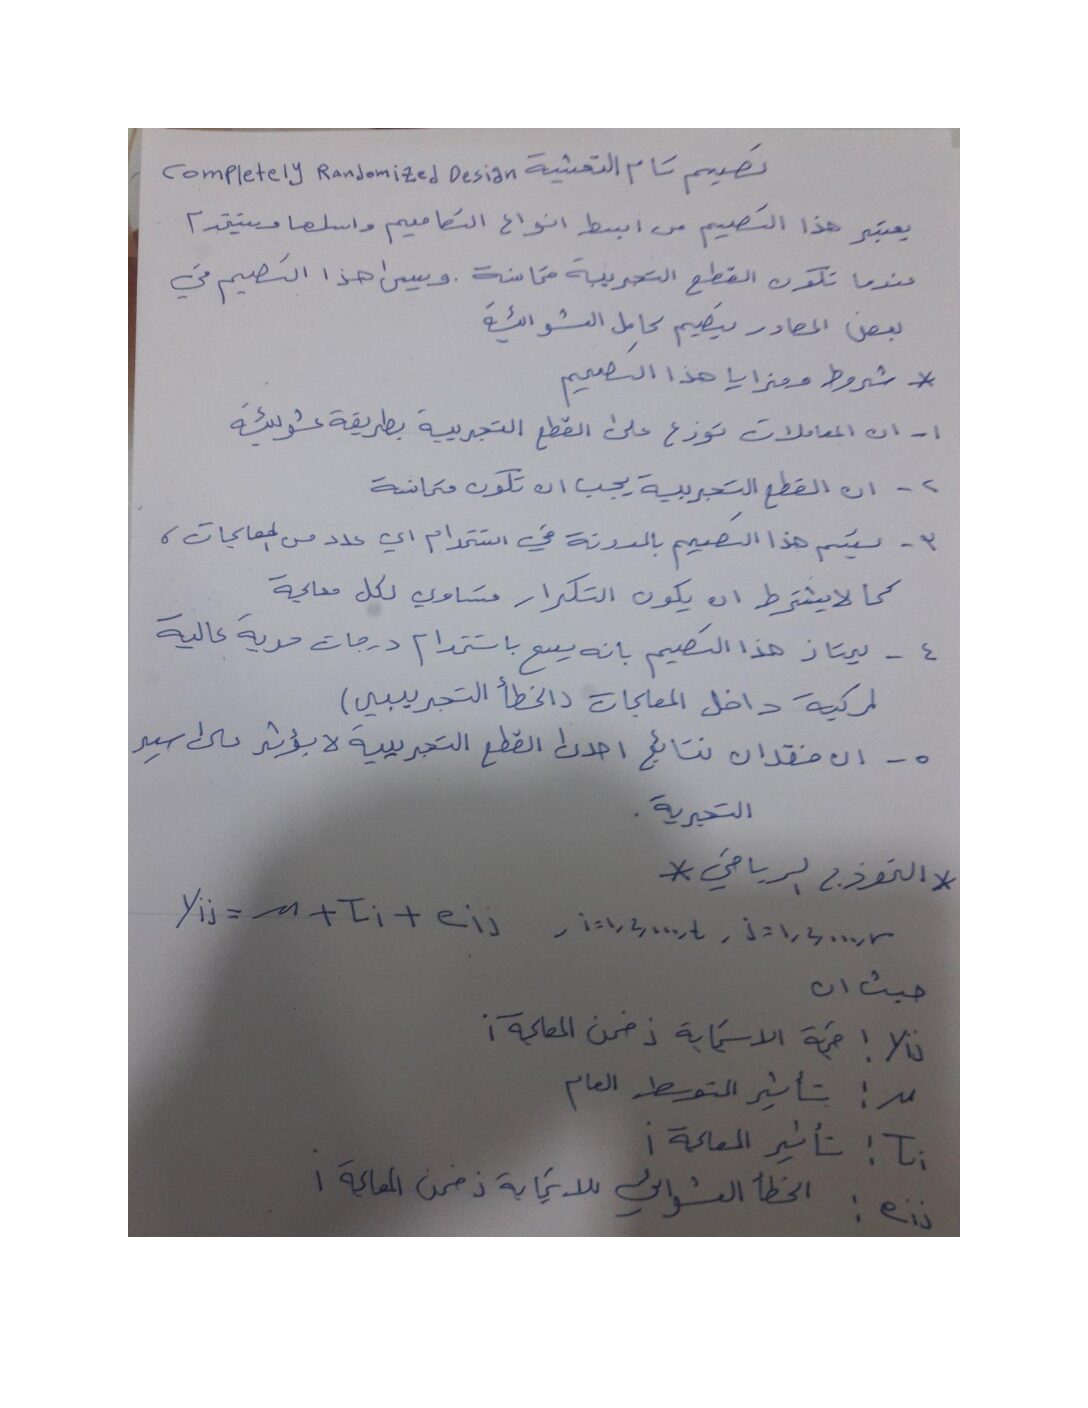 تصميم تام التعشية Completely Randomized Design
يعتبر هذا التصميم من ابسط انواع التصاميم واسهلها ويستخدم
عندما تكون القطع التجريبية متجانسة . ويسمى هذا التصميم في
بعض المصادر بتصميم كامل العشوائية
* شروط ومزايا هذا التصميم
١- ان المعاملات توزع على القطع التجريبية بطريقة عشوائية
٢- ان القطع التجريبية يجب ان تكون متجانسة
٣- يتسم هذا التصميم بالمرونة في استخدام اي عدد من المعالجات ،
كما لا يشترط ان يكون التكرار متساوي لكل معالجة
٤- يمتاز هذا التصميم بانه يسمح باستخدام درجات حرية عالية
لمركبة داخل المعالجات (الخطأ التجريبي)
٥- ان فقدان نتائج احدى القطع التجريبية لا يؤثر على سير
التجربة .
* النموذج الرياضي *
yij = μ + τi + eij , i=1,2,....,t , j=1,2,....,r
حيث ان
yij : قيمة الاستجابة j ضمن المعالجة i
μ : تأثير المتوسط العام
τi : تأثير المعالجة i
eij : الخطأ العشوائي للاستجابة j ضمن المعالجة i